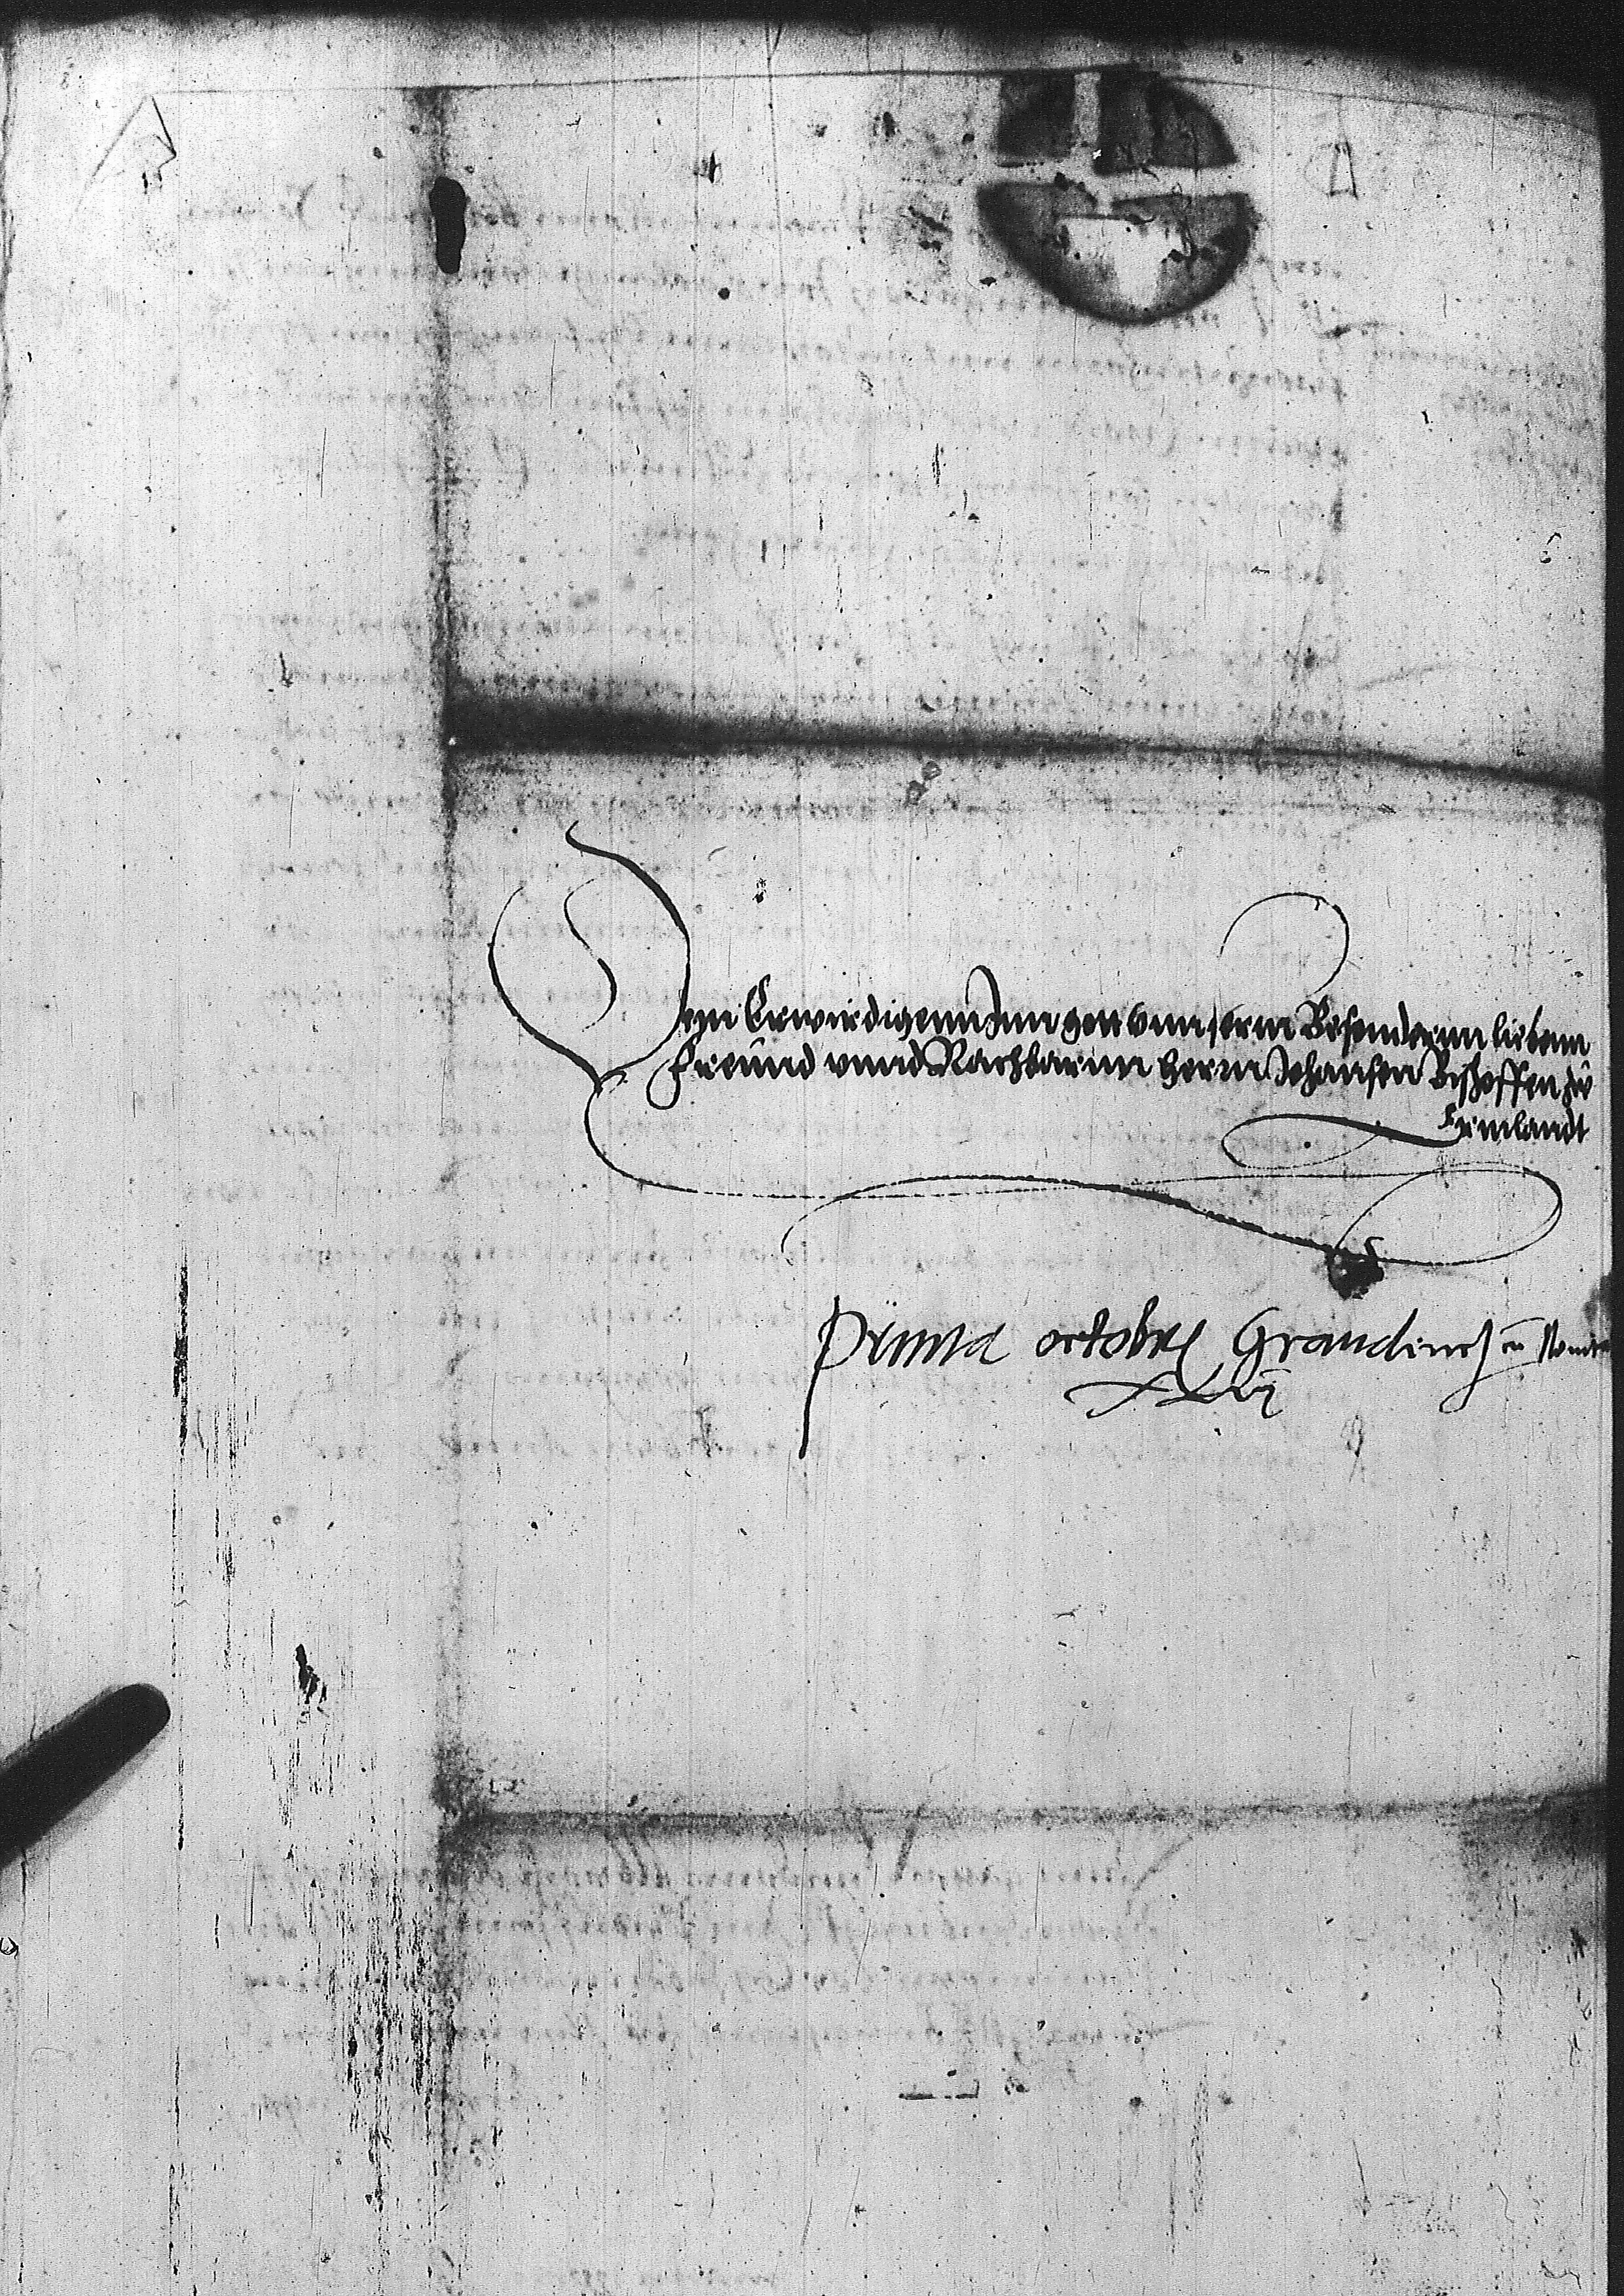 Dem Erwirdigenn Inn got vnnserm Besonndernn liebenn
Freund vnnd Nachbarnn herrn Johansen Bischoffen zů
Ermlandt
Prima octobris Graudincz in
XLvj